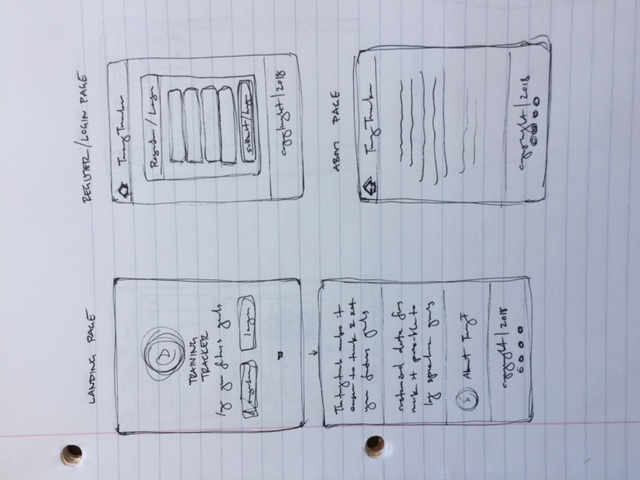 LANDING PAGE
TRAINING
TRACKER
log your fitness goals
register
login
Training Tracker makes it
easier to track & set
your fitness goals
make it possible to
log specific goals
About
copyright | 2018
REGISTER/LOGIN PAGE
Training Tracker
Register / Login
submit/login
copyright | 2018
ABOUT PAGE
Training Tracker
copyright | 2018